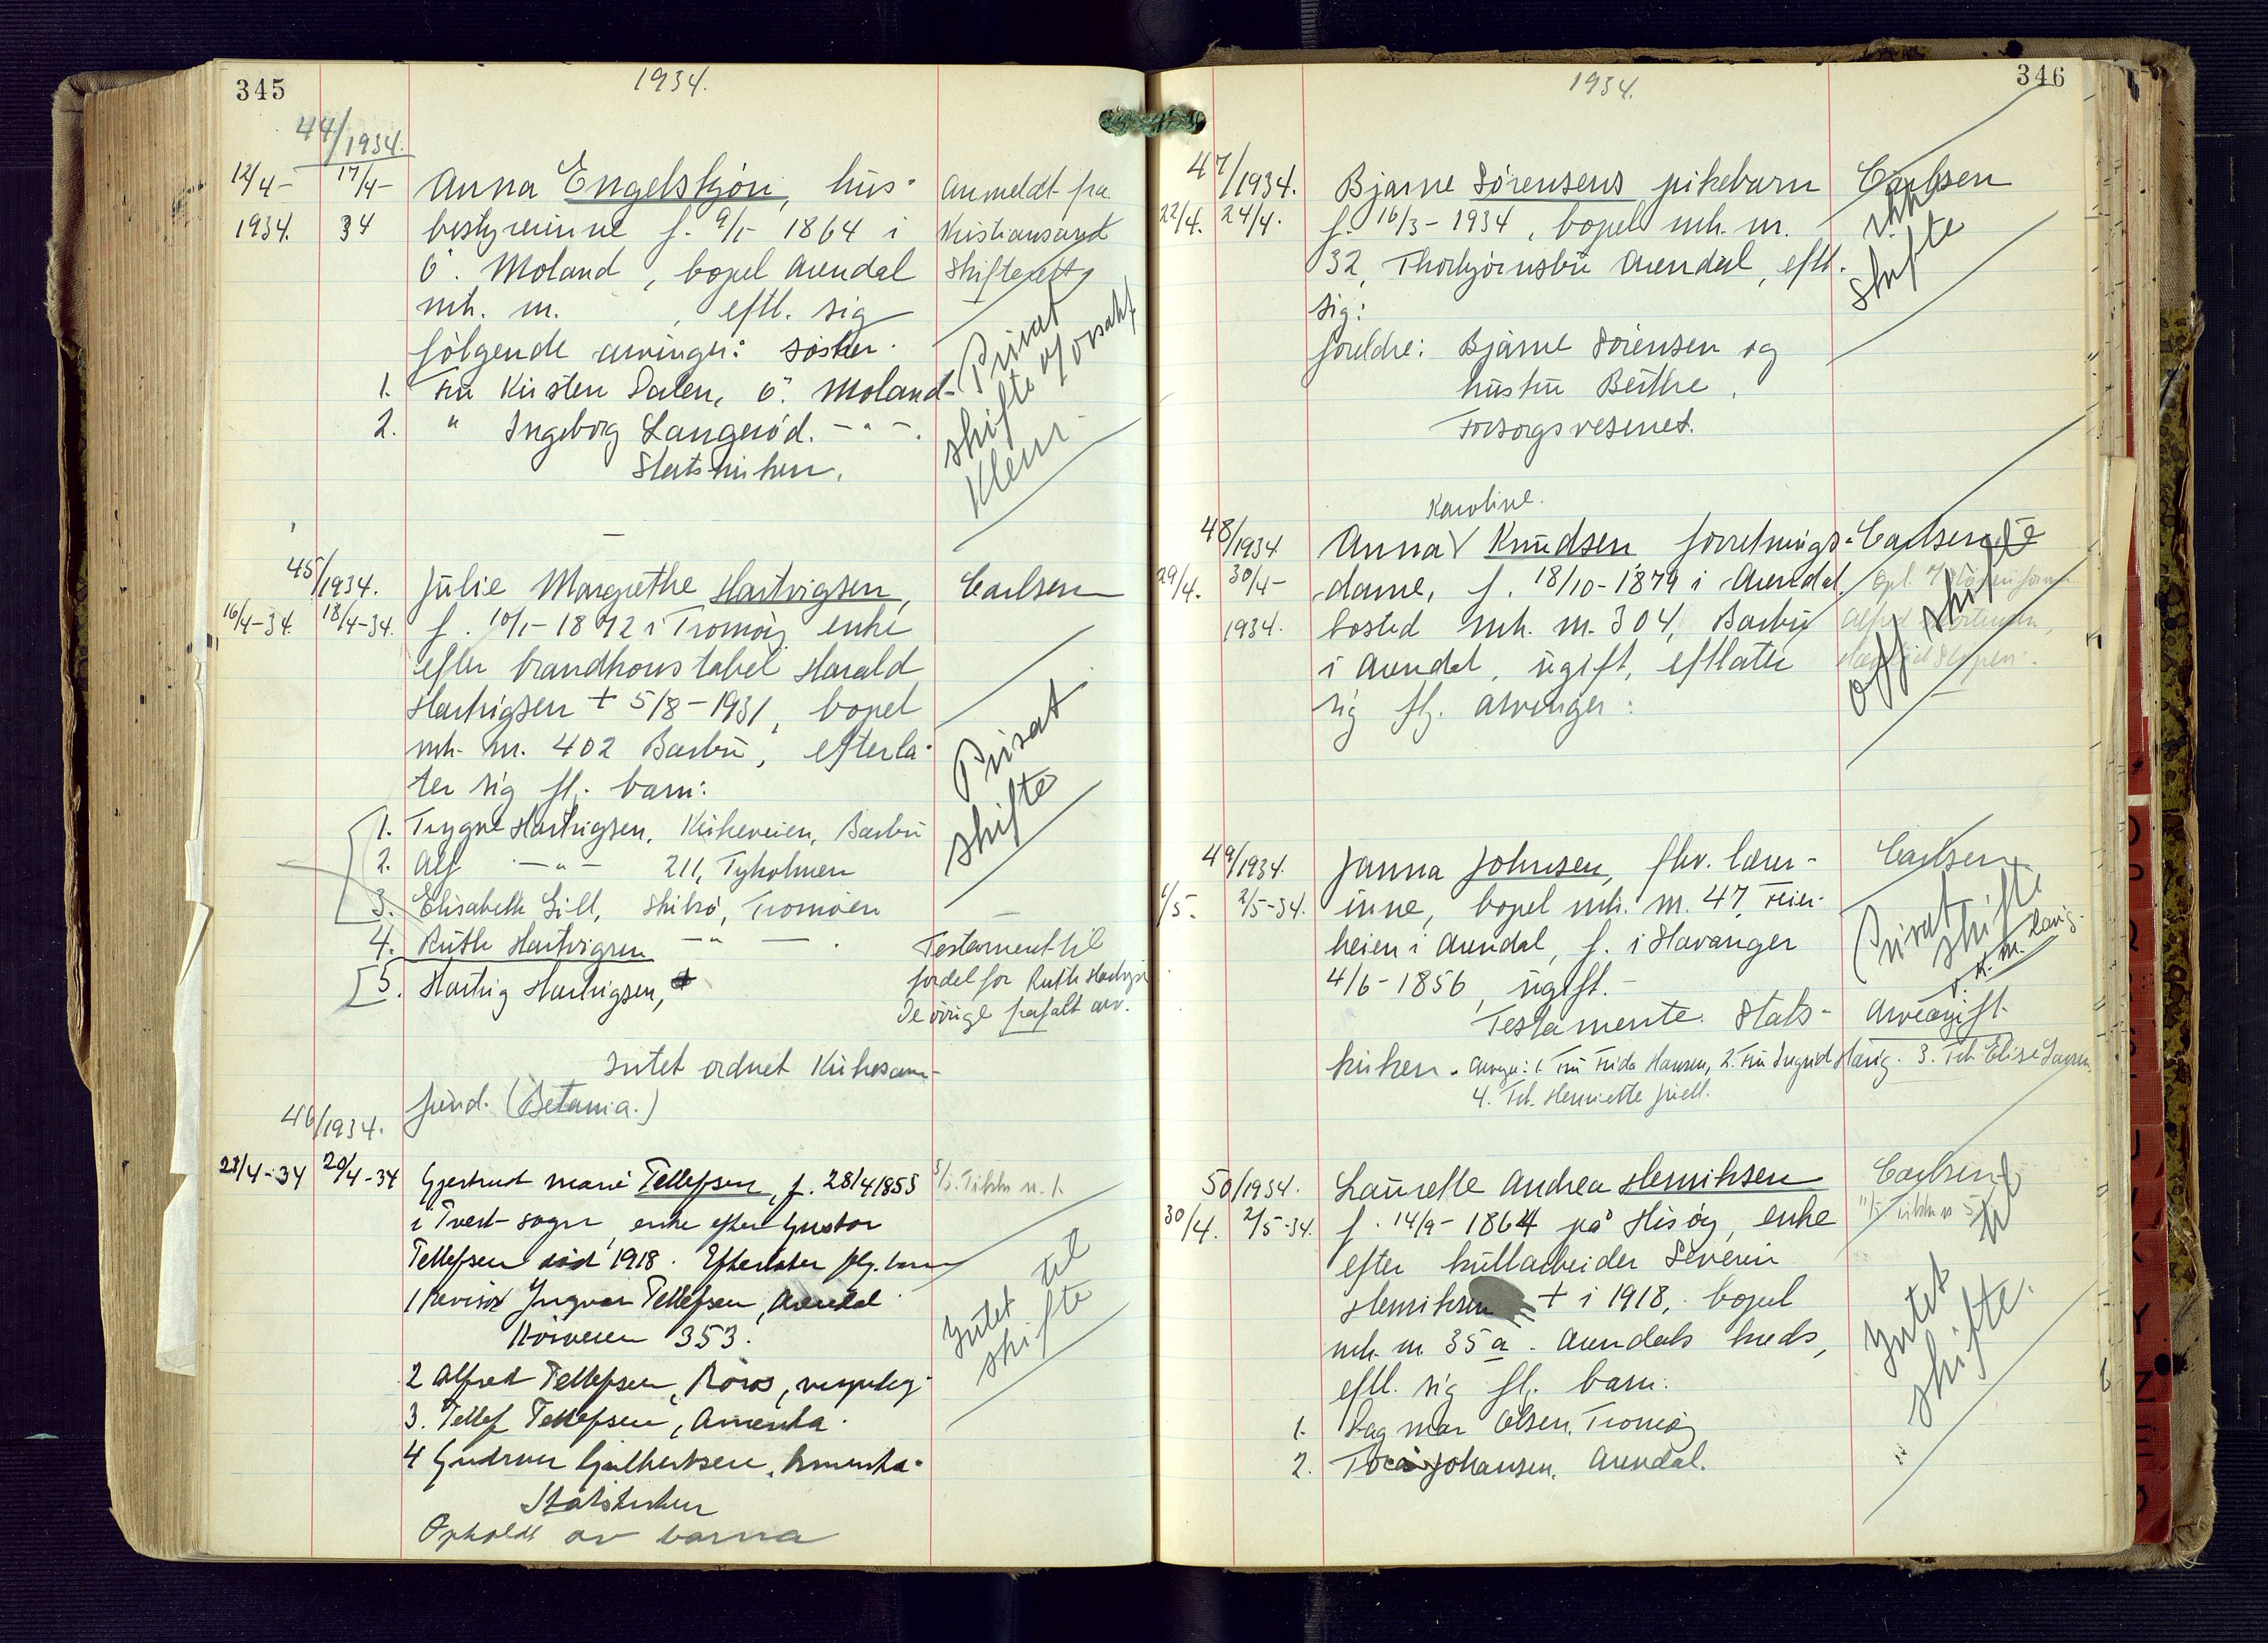 345
1934.
44/1934.
12/4- 17/4- Anna Engelskjön, hus-
1934. 34 bestyrerinne f. 9/1- 1864 i
ö. Moland, bopel Arendal
mh. nr. , eftl. sig
følgende arvinger: søsken.
1. Fru Kirsten Dalen, ö. Moland-
2. " Ingeborg Langeröd. - " -.
Statskirken.
Anmeldt fra
Kristiansand
Skifterett
Privat
skifte
Klem
45/1934. Julie Margrethe Hartvigsen,
16/4-34. 18/4-34. f. 10/1-1872 i Tromøy enke
efter brandkonstabel Harald
Hartvigsen + 5/8-1931, bopel
mh. nr. 402 Barbu, efterla-
ter sig fl. barn:
1. Trygve Hartvigsen, Kirkeveien, Barbu
2. Alf - " - 211, Tyholmen
3. Elisabeth Gill, Skilsø, Tromøen
4. Ruth Hartvigsen - " - .
5. Hartvig Hartvigsen,
Intet ordnet Kirkesam-
fund. (Betania.)
Carlsen
Privat
skifte
Testament til
fordel for Ruth Hartvigs
De øvrige frafalt arv.
46/1934.
23/4-34 20/4-34 Gjertrud Marie Tellefsen, f. 28/4 1855
i Tveit sogn, enke efter Gustav
Tellefsen död 1918. Efterlater flg. barn
1 Revisor Yngvar Tellefsen, Arendal
353.
2 Alfred Tellefsen, Røros,
3. Tellef Tellefsen, Amerika.
4 Gudrun Gjilbertsen, Amerika.
Statskirken
Opholdt av barna
Intet til
skifte
346
1934.
47/1934. Bjarne Sörensens pikebarn
22/4. 24/4. f. 16/3-1934, bopel mh. nr.
32, Thorbjörnsbu Arendal, eftl.
sig:
foreldre: Bjarne Sörensen og
hustru Berthe.
Forsorgsvesenet.
Carlsen
ikke
skifte
Karoline.
48/1934 Anna Knudsen forretnings-
29/4. 30/4- dame, f. 18/10-1879 i Arendal.
1934. bosted mh. nr. 304, Barbu
i Arendal, ugift, efflater
sig flg. arvinger:
Carlsen
off. skifte
49/1934. Janna Johnsen, fhv. lærer-
1/5. 2/5-34. inne, bopel mh. nr. 47, Feier-
heien i Arendal, f. i Stavanger
4/6-1856, ugift.-
Testamente. Stats-
kirken. Arvger: 1. Fru Frida Hansen, 2. Fru Ingrid Harig. 3. Frk. Elise
4. Frk. Henriette
Carlsen
Privat
skifte
Arveavgift.
50/1934. Laurette Andrea Henriksen
30/4. 2/5-34. f. 14/9-1864 på Hisøy, enke
efter kullarbeider Severin
Henriksen + i 1918, bopel
mh. nr. 35 a. Arendals kreds,
eftl. sig fl. barn.
1. Dagmar Olsen, Tromøy
2. Tora Johansen, Arendal.
Carlsen
Intet til
skifte.